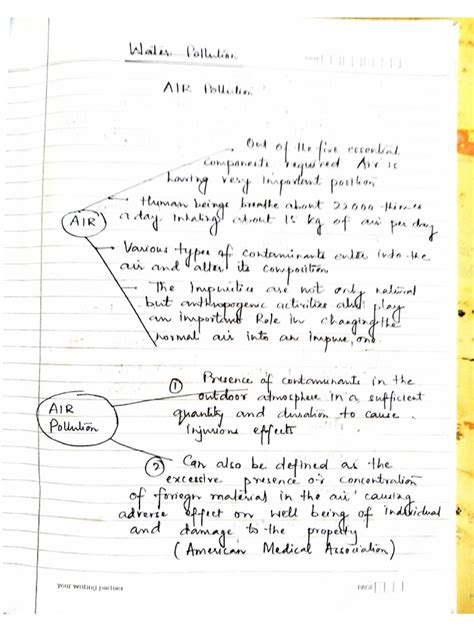 Water Pollution
AIR Pollution
Out of the five essential
components required Air is
having very important position
Human beings breathe about 22000 times
a day. Inhaling about 15 kg of air per day
AIR
Various types of contaminants enter into the
air and alter its composition
The Impurities are not only natural
but anthropogenic activities also play
an important Role in changing the
normal air into an impure, one
① Presence of contaminants in the
outdoor atmosphere in a sufficient
quantity and duration to cause
Injurious effects
AIR
Pollution
② Can also be defined as the
excessive presence or concentration
of foriegn material in the air causing
adverse effect on well being of individual
and damage to the property
(American Medical Association)
your writing partner
PAGE